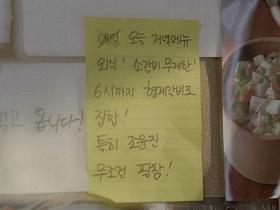 오늘 저녁메뉴
외식! 소갈비 무제한!
6시까지 형제갈비로
집합!
특히 조윤진
무조건 필참!
먹고 옵니다!